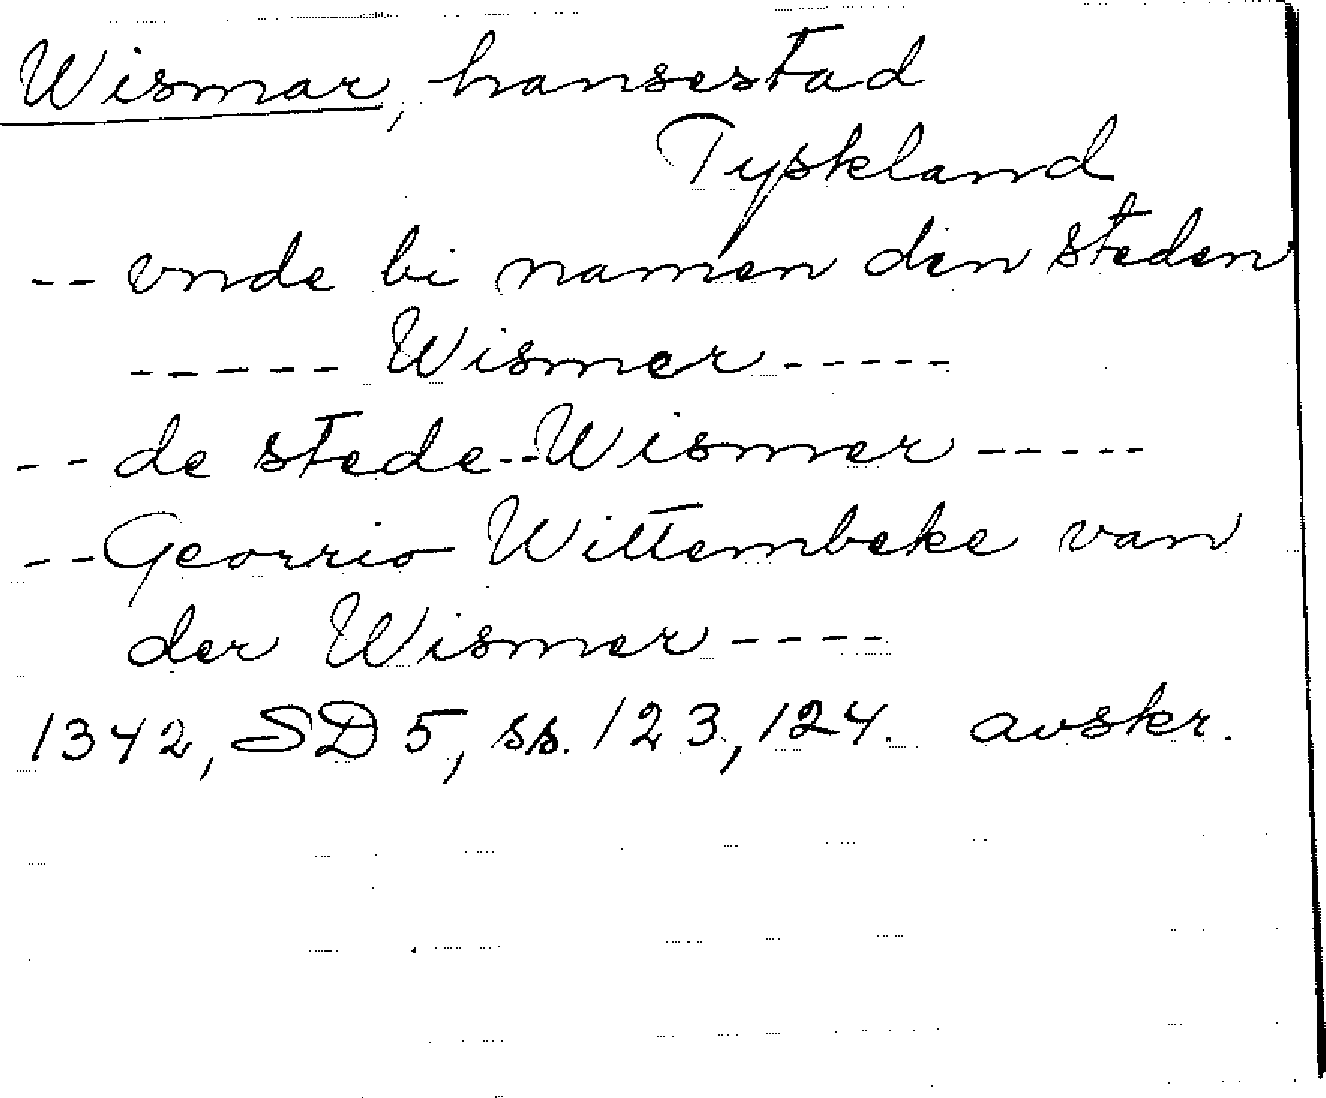 Wismar, hansestad
Tyskland
-- vnde bi namen den steden
----- Wismer -----
-- de stede -- Wismer -----
-- Georrio Wittembeke van
der Wismer ----
1342, SD 5, ss. 123, 124. avskr.